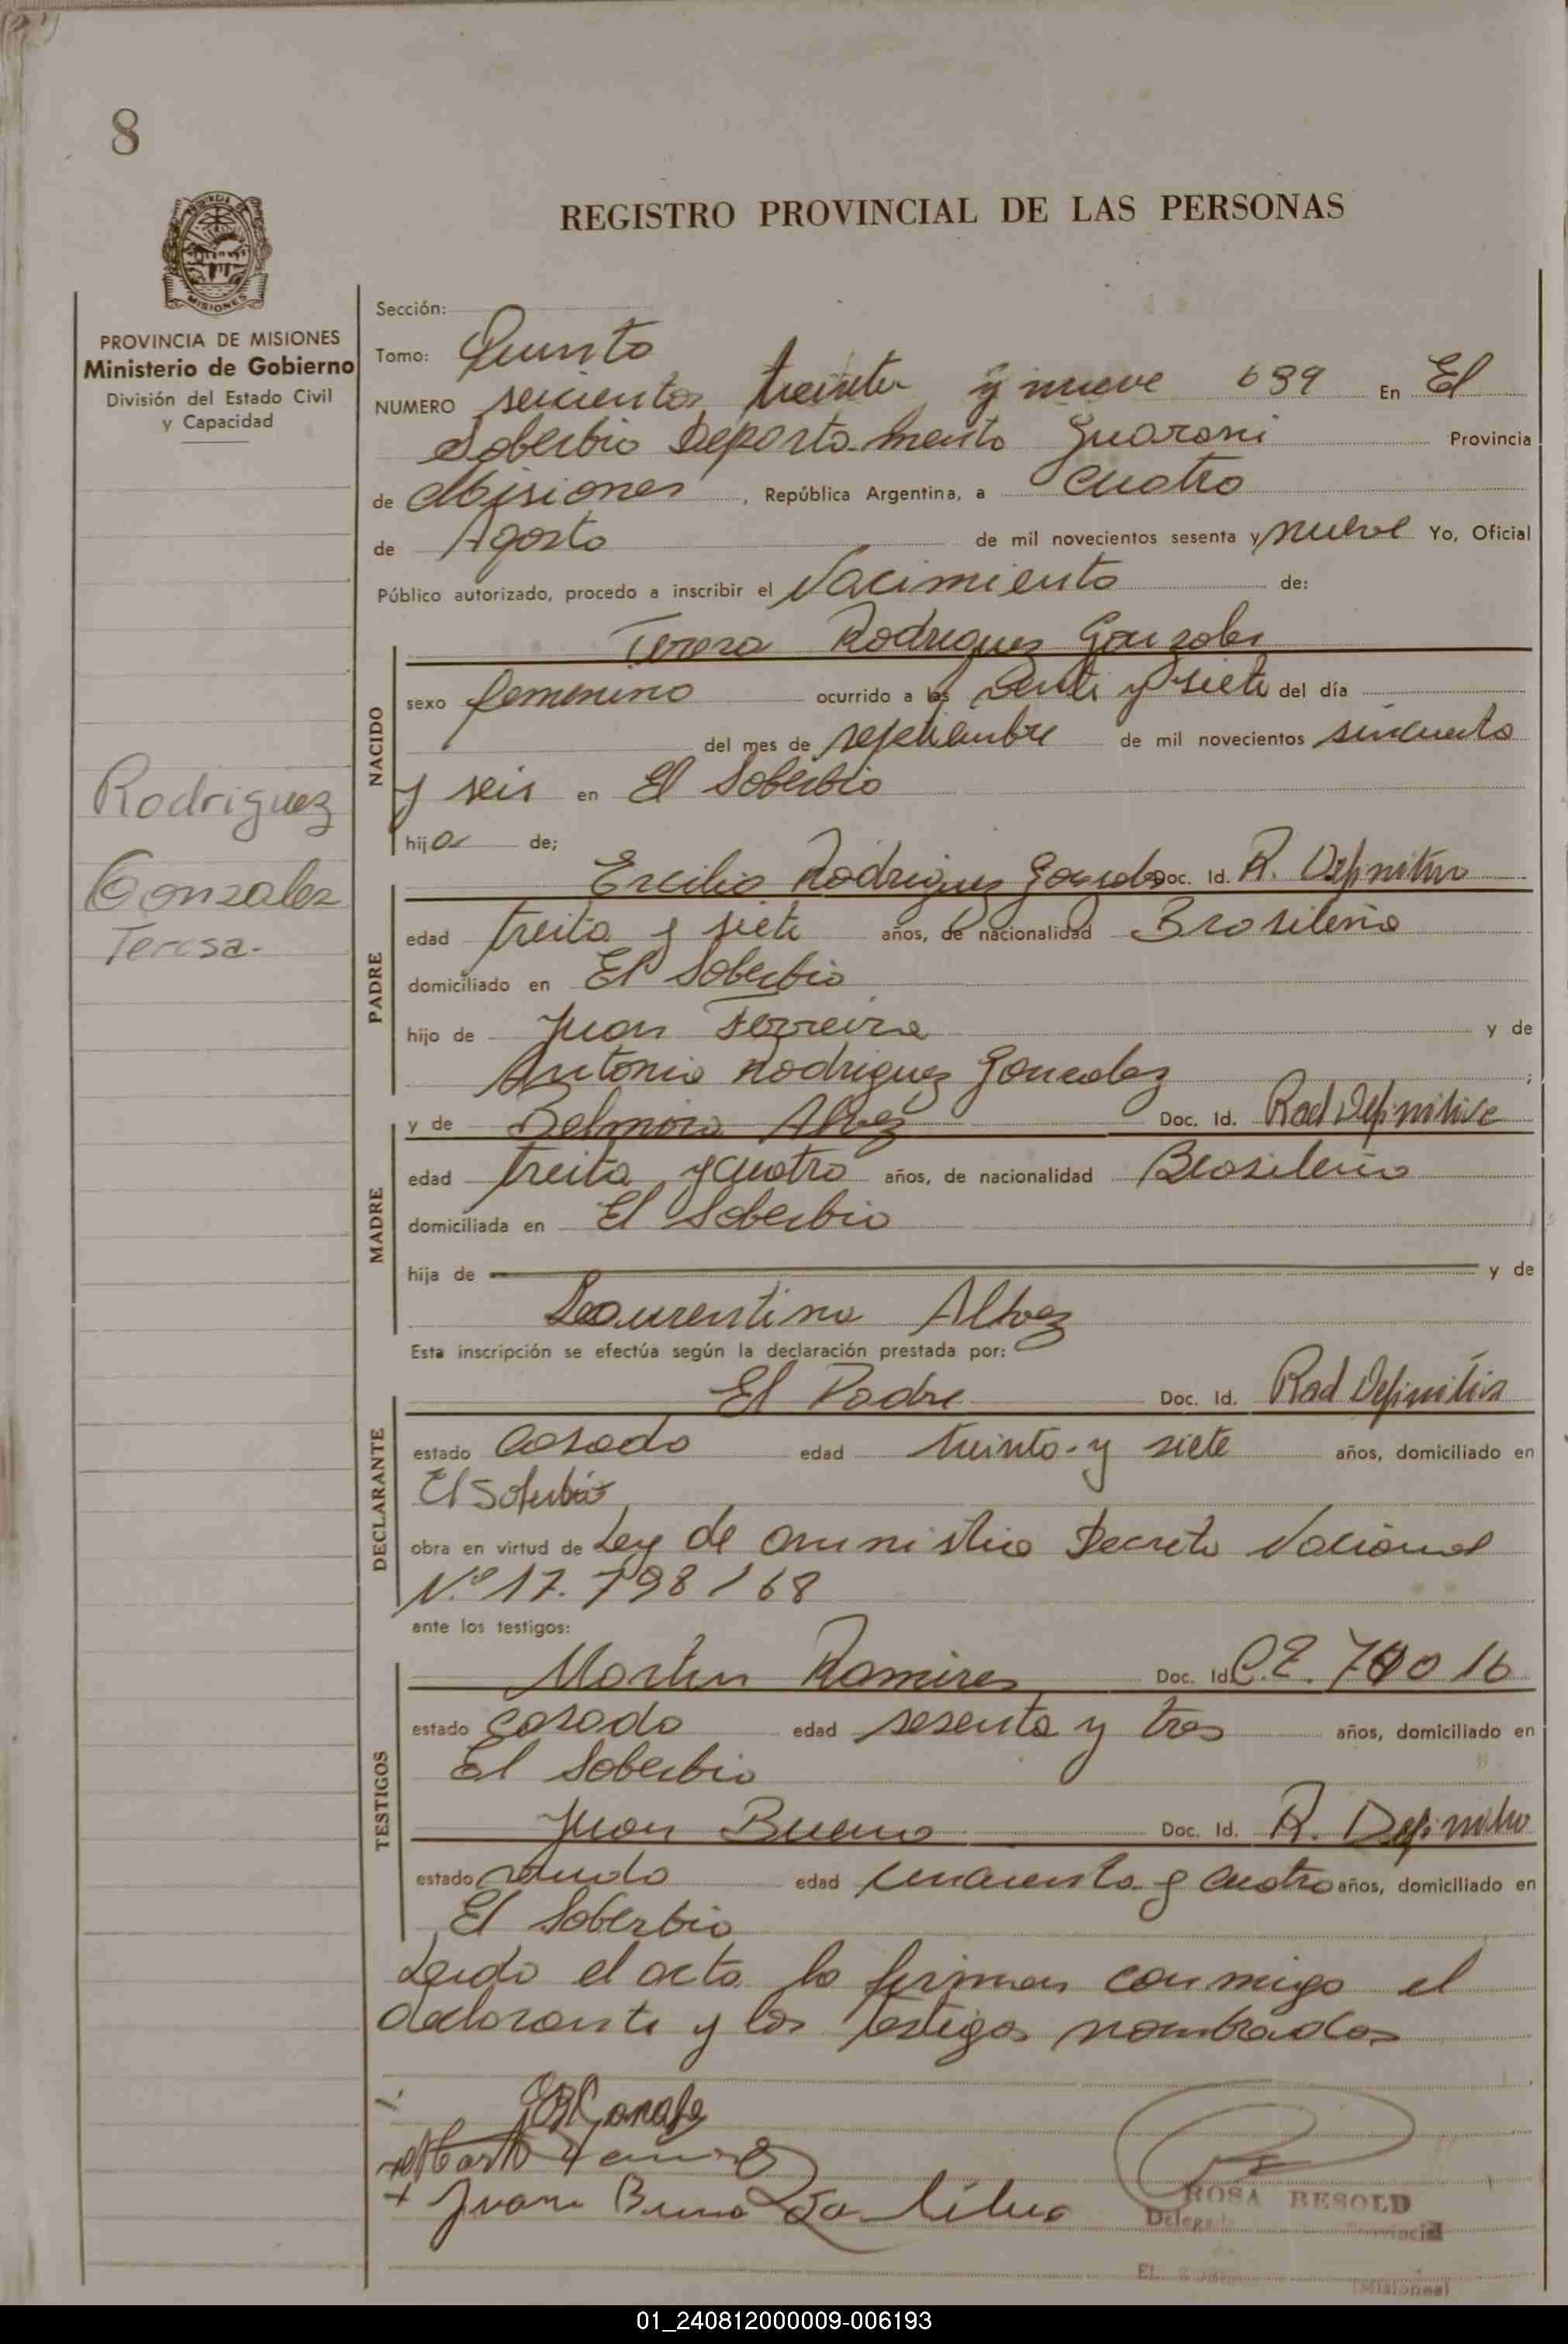 8
REGISTRO PROVINCIAL DE LAS PERSONAS
MISIONES
PROVINCIA DE MISIONES
Ministerio de Gobierno
División del Estado Civil
y Capacidad
Rodriguez
Gonzalez
Teresa.-
Sección:
Tomo: Quinto
NUMERO seiscientos treinta y nueve 639 En El
Soberbio Departamento Guarani Provincia
de Misiones, República Argentina, a cuatro
de Agosto de mil novecientos sesenta y nueve Yo, Oficial
Público autorizado, procedo a inscribir el Nacimiento de:
Teresa Rodriguez Gonzales
NACIDO
sexo femenino ocurrido a las venti y siete del día
del mes de septiembre de mil novecientos sincuenta
y seis en El Soberbio
hija de;
PADRE
Ercilio Rodriguez Doc. Id. R. Definitiva
edad treita y siete años, de nacionalidad Brasileña
domiciliado en El Soberbio
hijo de Juan Ferreira y de
Antonia Rodriguez Goncalez;
MADRE
y de Belmira Alvez Doc. Id. Rad Definitiva
edad treita y cuatro años, de nacionalidad Brasileña
domiciliada en El Soberbio
hija de y de
Laurentina Alvez
Esta inscripción se efectúa según la declaración prestada por:
DECLARANTE
El Padre Doc. Id. Rad Definitiva
estado casado edad treinta y siete años, domiciliado en
El Soberbio
obra en virtud de Ley de amnistia Decreto Nacional
N.º 17.798/68
ante los testigos:
TESTIGOS
Martin Ramires Doc. Id. 
estado casado edad sesenta y tres años, domiciliado en
El Soberbio
Juan Bueno Doc. Id. R. Definitiva
estado edad cuarenta y cuatro años, domiciliado en
El Soberbio
Leido el acta la firman conmigo el
declarante y los testigos nombrados
Juan Bueno Da Silva
ROSA BESOLD
01_240812000009-006193